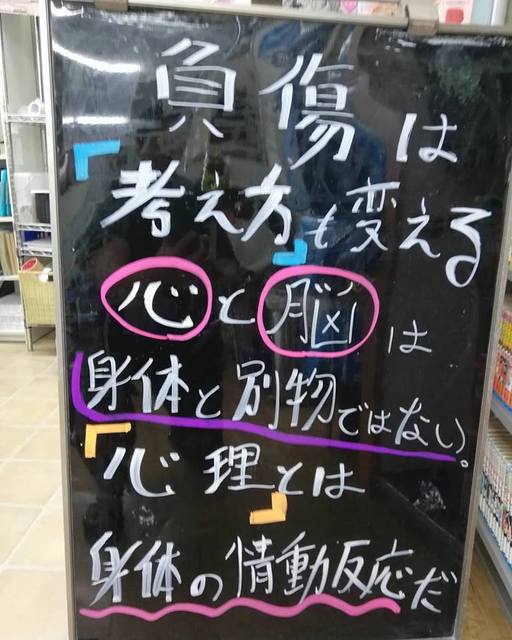 負傷は
「考え方」も変える
心と脳は
身体と別物ではない。
「心理とは」
身体の情動反応だ